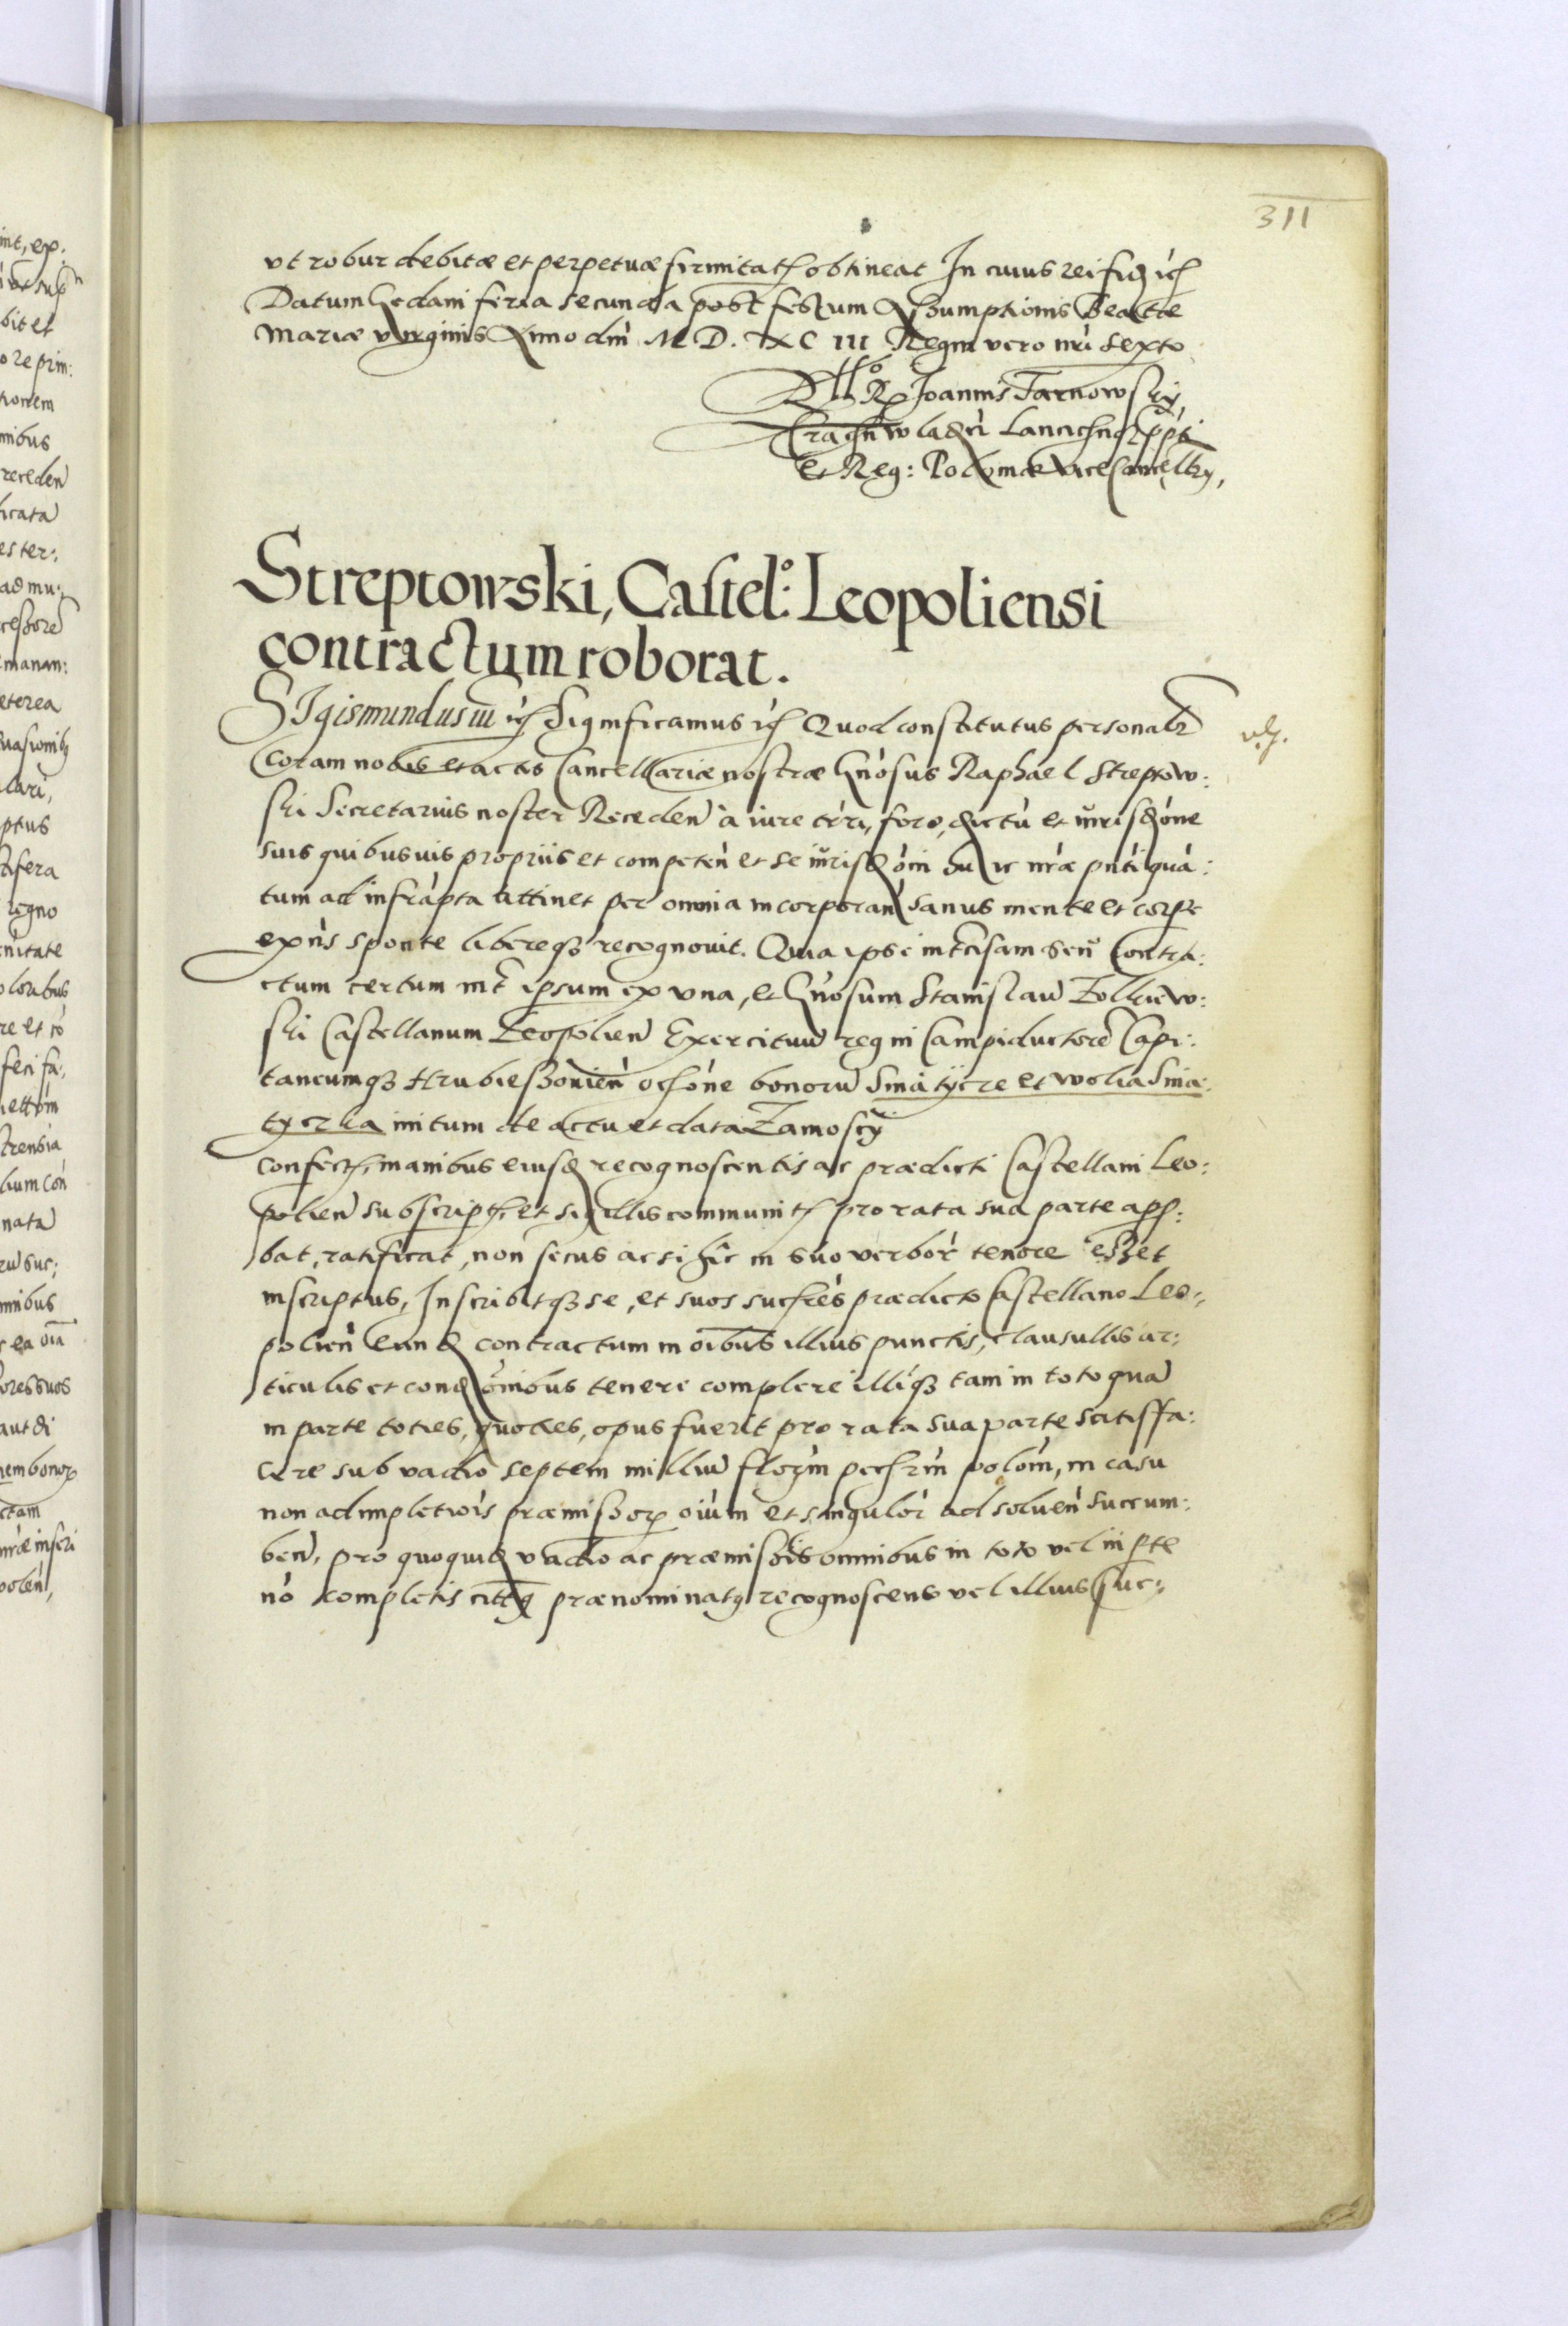 311
vt robur debitæ et perpetuæ firmitatis obtineat In cuius rei fid etc
Datum Gedani feria secunda post festum Assumptionis Beatæ
Mariæ virginis Anno dni M D. XC III Regni vero nri sexto
R Joannis Tarnowski,
Crac Lancicn ppti
et Reg: Poloniæ Vicecancellry,
Streptowski, Castel: Leopoliensi
contractum roborat.
SIgismundus iii etc Significamus etc Quod constitutus personalr
Coram nobis et actis Cancellariæ nostræ Gnosus Raphael Streptow:
ski Secretarius noster Receden à iure trri, foro, distctu et iurisdone
suis quibusuis propriis et competen et se iurisdoni huic nræ pnti quá:
tum ad infrapta attinet per omnia incorporan sanus mente et corpe
exns sponte libereqз recognouit. Quia ipse intercisam seu Contra:
ctum certum int ipsum ex vna, et Gnosum Stanislau Zolkiew:
ski Castellanum Leopolien Exercituu regni Campiductore Capi:
taneumqз Hrubieszouien ochone bonoru Smiatijcze et wolia Smia:
tyczka initum de actu et data Zamoscy
confect, manibus eiusd recognoscentis ac prædicti Castellani Leo:
polien subscript, et sigillis communit pro rata sua parte app:
bat, ratificat, non secus ac si hic in suo verbor tenore esset
inscriptus, Inscribitqз se, et suos succres prædicto Castellano Leo:,
polien eund contractum in oibus illius punctis, clausullis ar:
ticulis et condonibus tenere complere illiqз tam in toto qua
in parte toties, quoties, opus fuerit pro rata sua parte satisfa:
cere sub vadio septem milliu floren pecrn polon, in casu
non adimpletiois præmissor oium et singulor ad soluen succum:
ben, pro quoquid vadio ac præmissis omnibus in toto vel in pte
no completis cittq prænominatq recognoscens vel illius suc:,